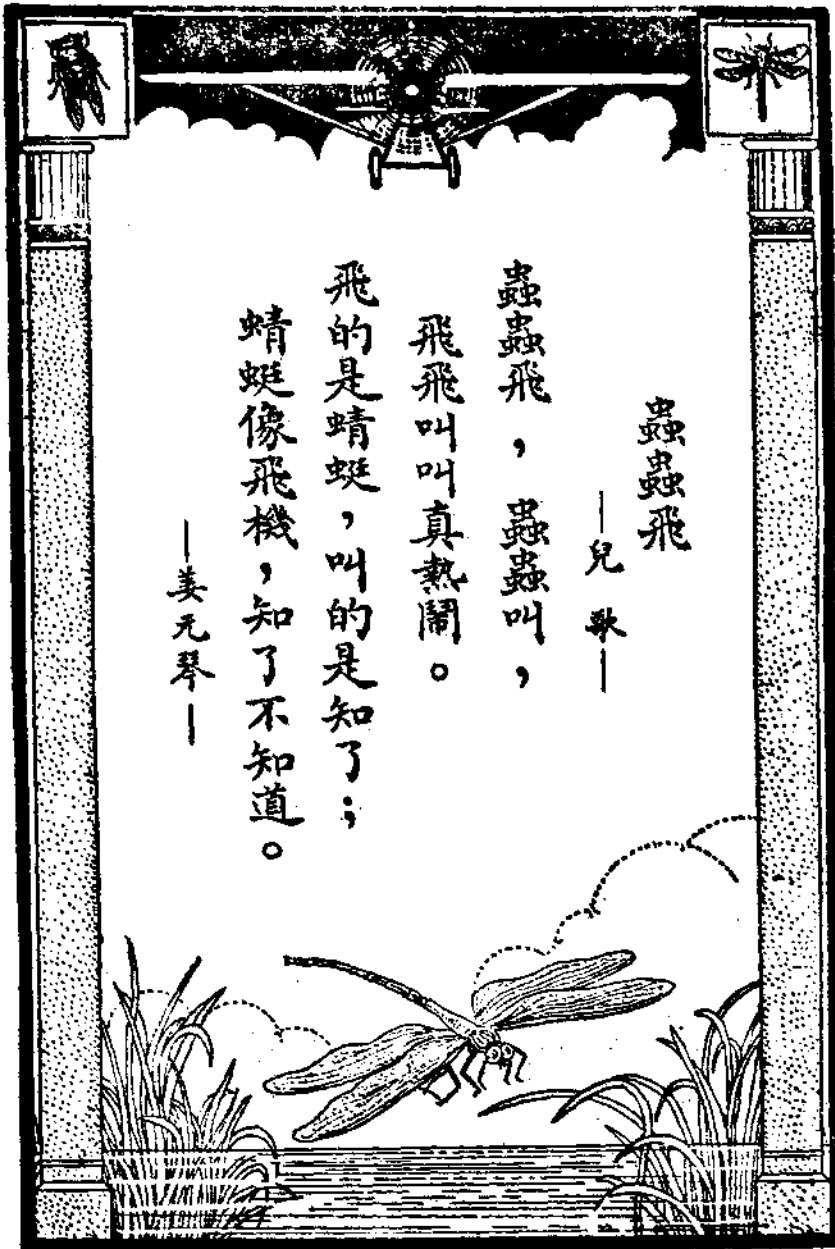 蟲蟲飛
—兒歌—
蟲蟲飛，蟲蟲叫，
飛飛叫叫真熱鬧。
飛的是蜻蜓，叫的是知了；
蜻蜓像飛機，知了不知道。
—姜元琴—